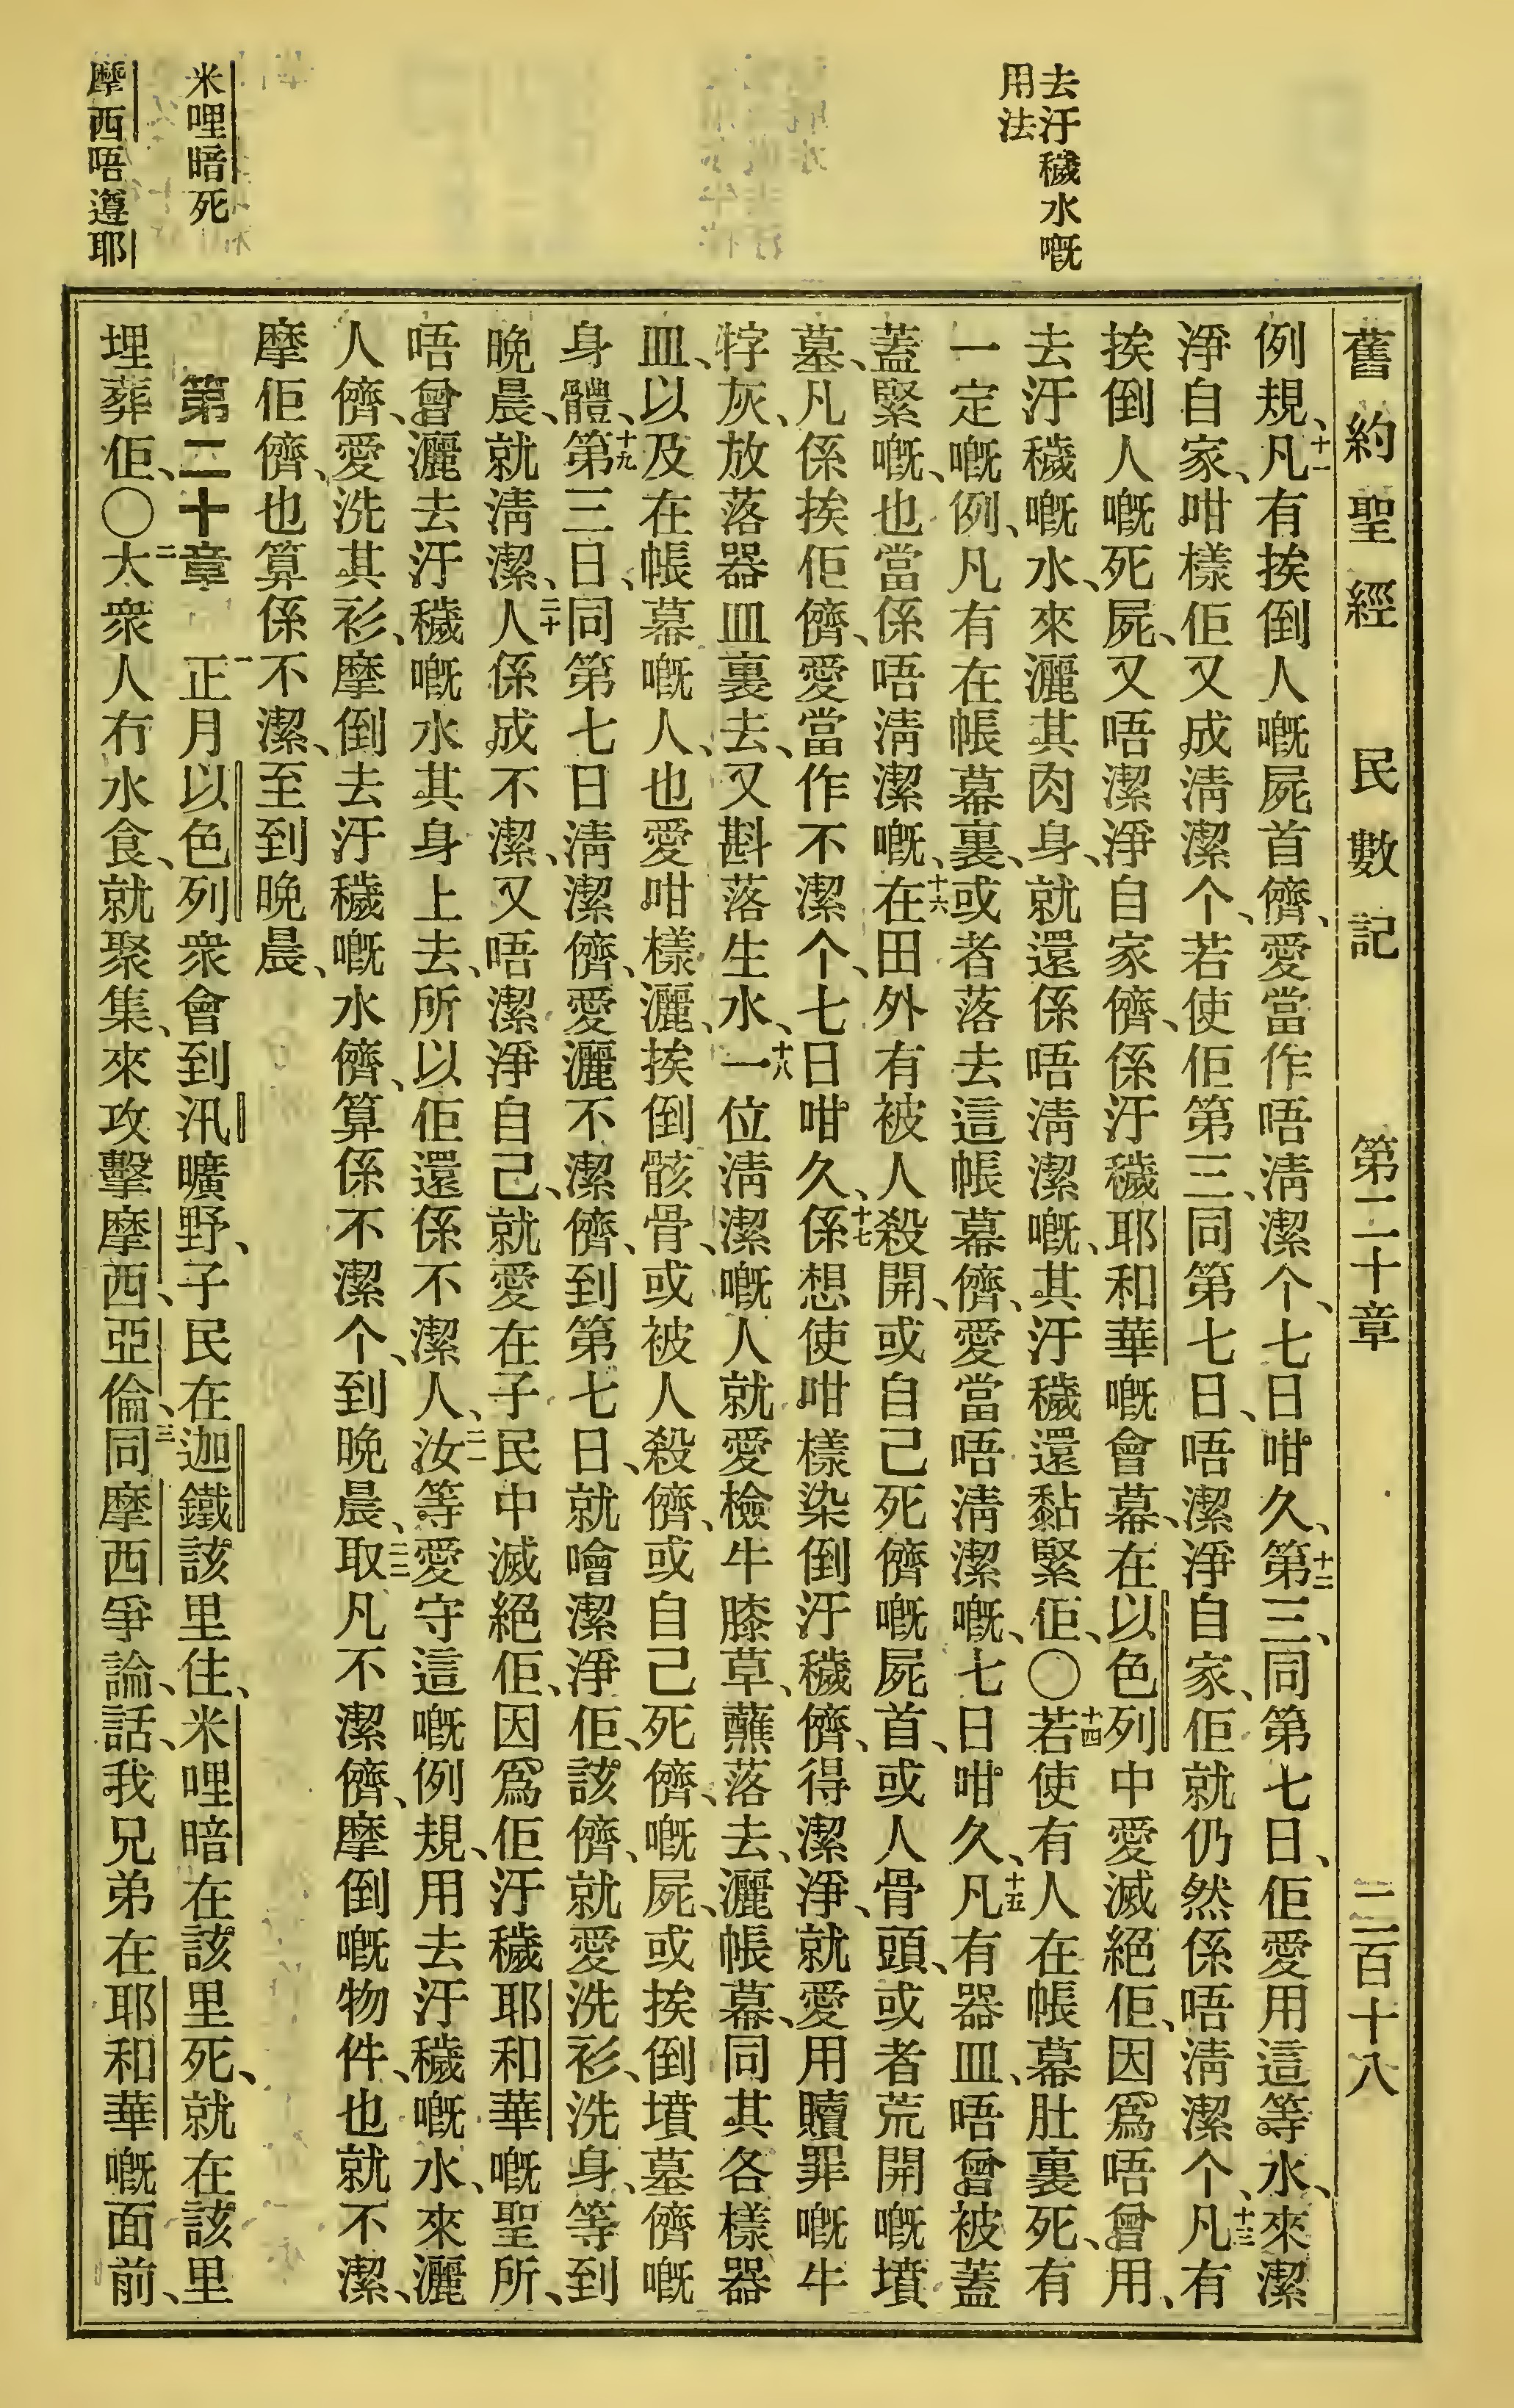 去汙穢水嘅
用法
米哩暗死
摩西唔遵耶
舊約聖經 民數記 第二十章 二百十八
例規、十一凡有挨倒人嘅屍首儕、愛當作唔淸潔个、七日咁久、十二第三、同第七日、佢愛用這等水、來潔
淨自家、咁樣佢又成淸潔个、若使佢第三、同第七日、唔潔淨自家、佢就仍然係唔淸潔个、十三凡有
挨倒人嘅死屍、又唔潔淨自家儕、係汙穢耶和華嘅會幕、在以色列中愛滅絕佢、因爲唔曾用、
去汙穢嘅水、來灑其肉身、就還係唔淸潔嘅、其汙穢還黏緊佢、〇十四若使有人在帳幕肚裏死、有
一定嘅例、凡有在帳幕裏、或者落去這帳幕儕、愛當唔淸潔嘅、七日咁久、十五凡有器皿、唔曾被蓋
蓋緊嘅、也當係唔淸潔嘅、十六在田外有被人殺開、或自己死儕嘅屍首、或人骨頭、或者荒開嘅墳
墓、凡係挨佢儕、愛當作不潔个、七日咁久、十七係想使咁樣染倒汙穢儕、得潔淨、就愛用贖罪嘅牛
牸灰、放落器皿裏去、又斟落生水、十八一位淸潔嘅人就愛檢牛膝草、蘸落去、灑帳幕、同其各樣器
皿、以及在帳幕嘅人、也愛咁樣灑、挨倒骸骨、或被人殺儕、或自己死儕、嘅屍、或挨倒墳墓儕嘅
身體、十九第三日、同第七日淸潔儕、愛灑不潔儕、到第七日、就噲潔淨佢、該儕、就愛洗衫、洗身、等到
晩晨、就淸潔、二十人係成不潔、又唔潔淨自己、就愛在子民中滅絕佢、因爲佢汙穢耶和華嘅聖所、
唔曾灑去汙穢嘅水其身上去、所以佢還係不潔人、二一汝等愛守這嘅例規、用去汙穢嘅水、來灑
人儕、愛洗其衫、摩倒去汙穢嘅水儕、算係不潔个、到晩晨、二二取凡不潔儕、摩倒嘅物件、也就不潔、
摩佢儕、也算係不潔、至到晩晨、
第二十章 一正月以色列衆會到汛曠野、子民在迦鐵該里住、米哩暗在該里死、就在該里
埋葬佢、〇二大衆人冇水食、就聚集、來攻擊摩西、亞倫、三同摩西爭論、話、我兄弟在耶和華嘅面前、